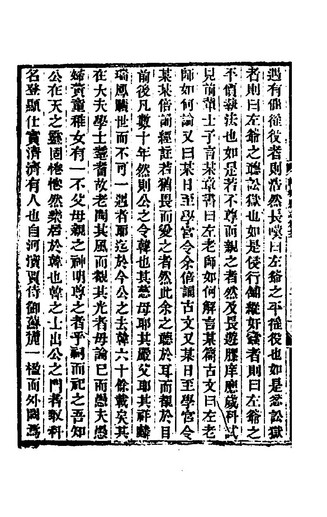 遇有催徭役者則浩然長嘆曰左爺之平徭役也如是忿訟獄
者則曰左爺之聽訟獄也如是夜行舖緃奸盜者則曰左爺之
不惰執法也如是若不尊而親之者然及長遊膠庠應歲科試
見前輩士子言某章書曰左老師如何解言某篇古文曰左老
師如何論又曰某日至學宮令余倍讀古文又某日至學宮令
某某倍誦經註若猶畏而愛之者然此余之聽於耳而親於目
前後凡數十年然則公之令韓也其慈母耶其嚴父耶其祥麟
瑞鳳曠世而不可一遇者耶迄於今公之去韓六十餘載矣其
在大夫學士耄耇故老聞其風而觀其光者毋論已而愚夫愚
婦黃童稚女有一不父母親之神明尊之者乎祠而祀之吾知
公在天之靈固惓惓然樂居於韓也韓之士出公之門者取科
名登顯仕實濟濟有人也自河濱賈侍御蔭猶一楹而外國馮